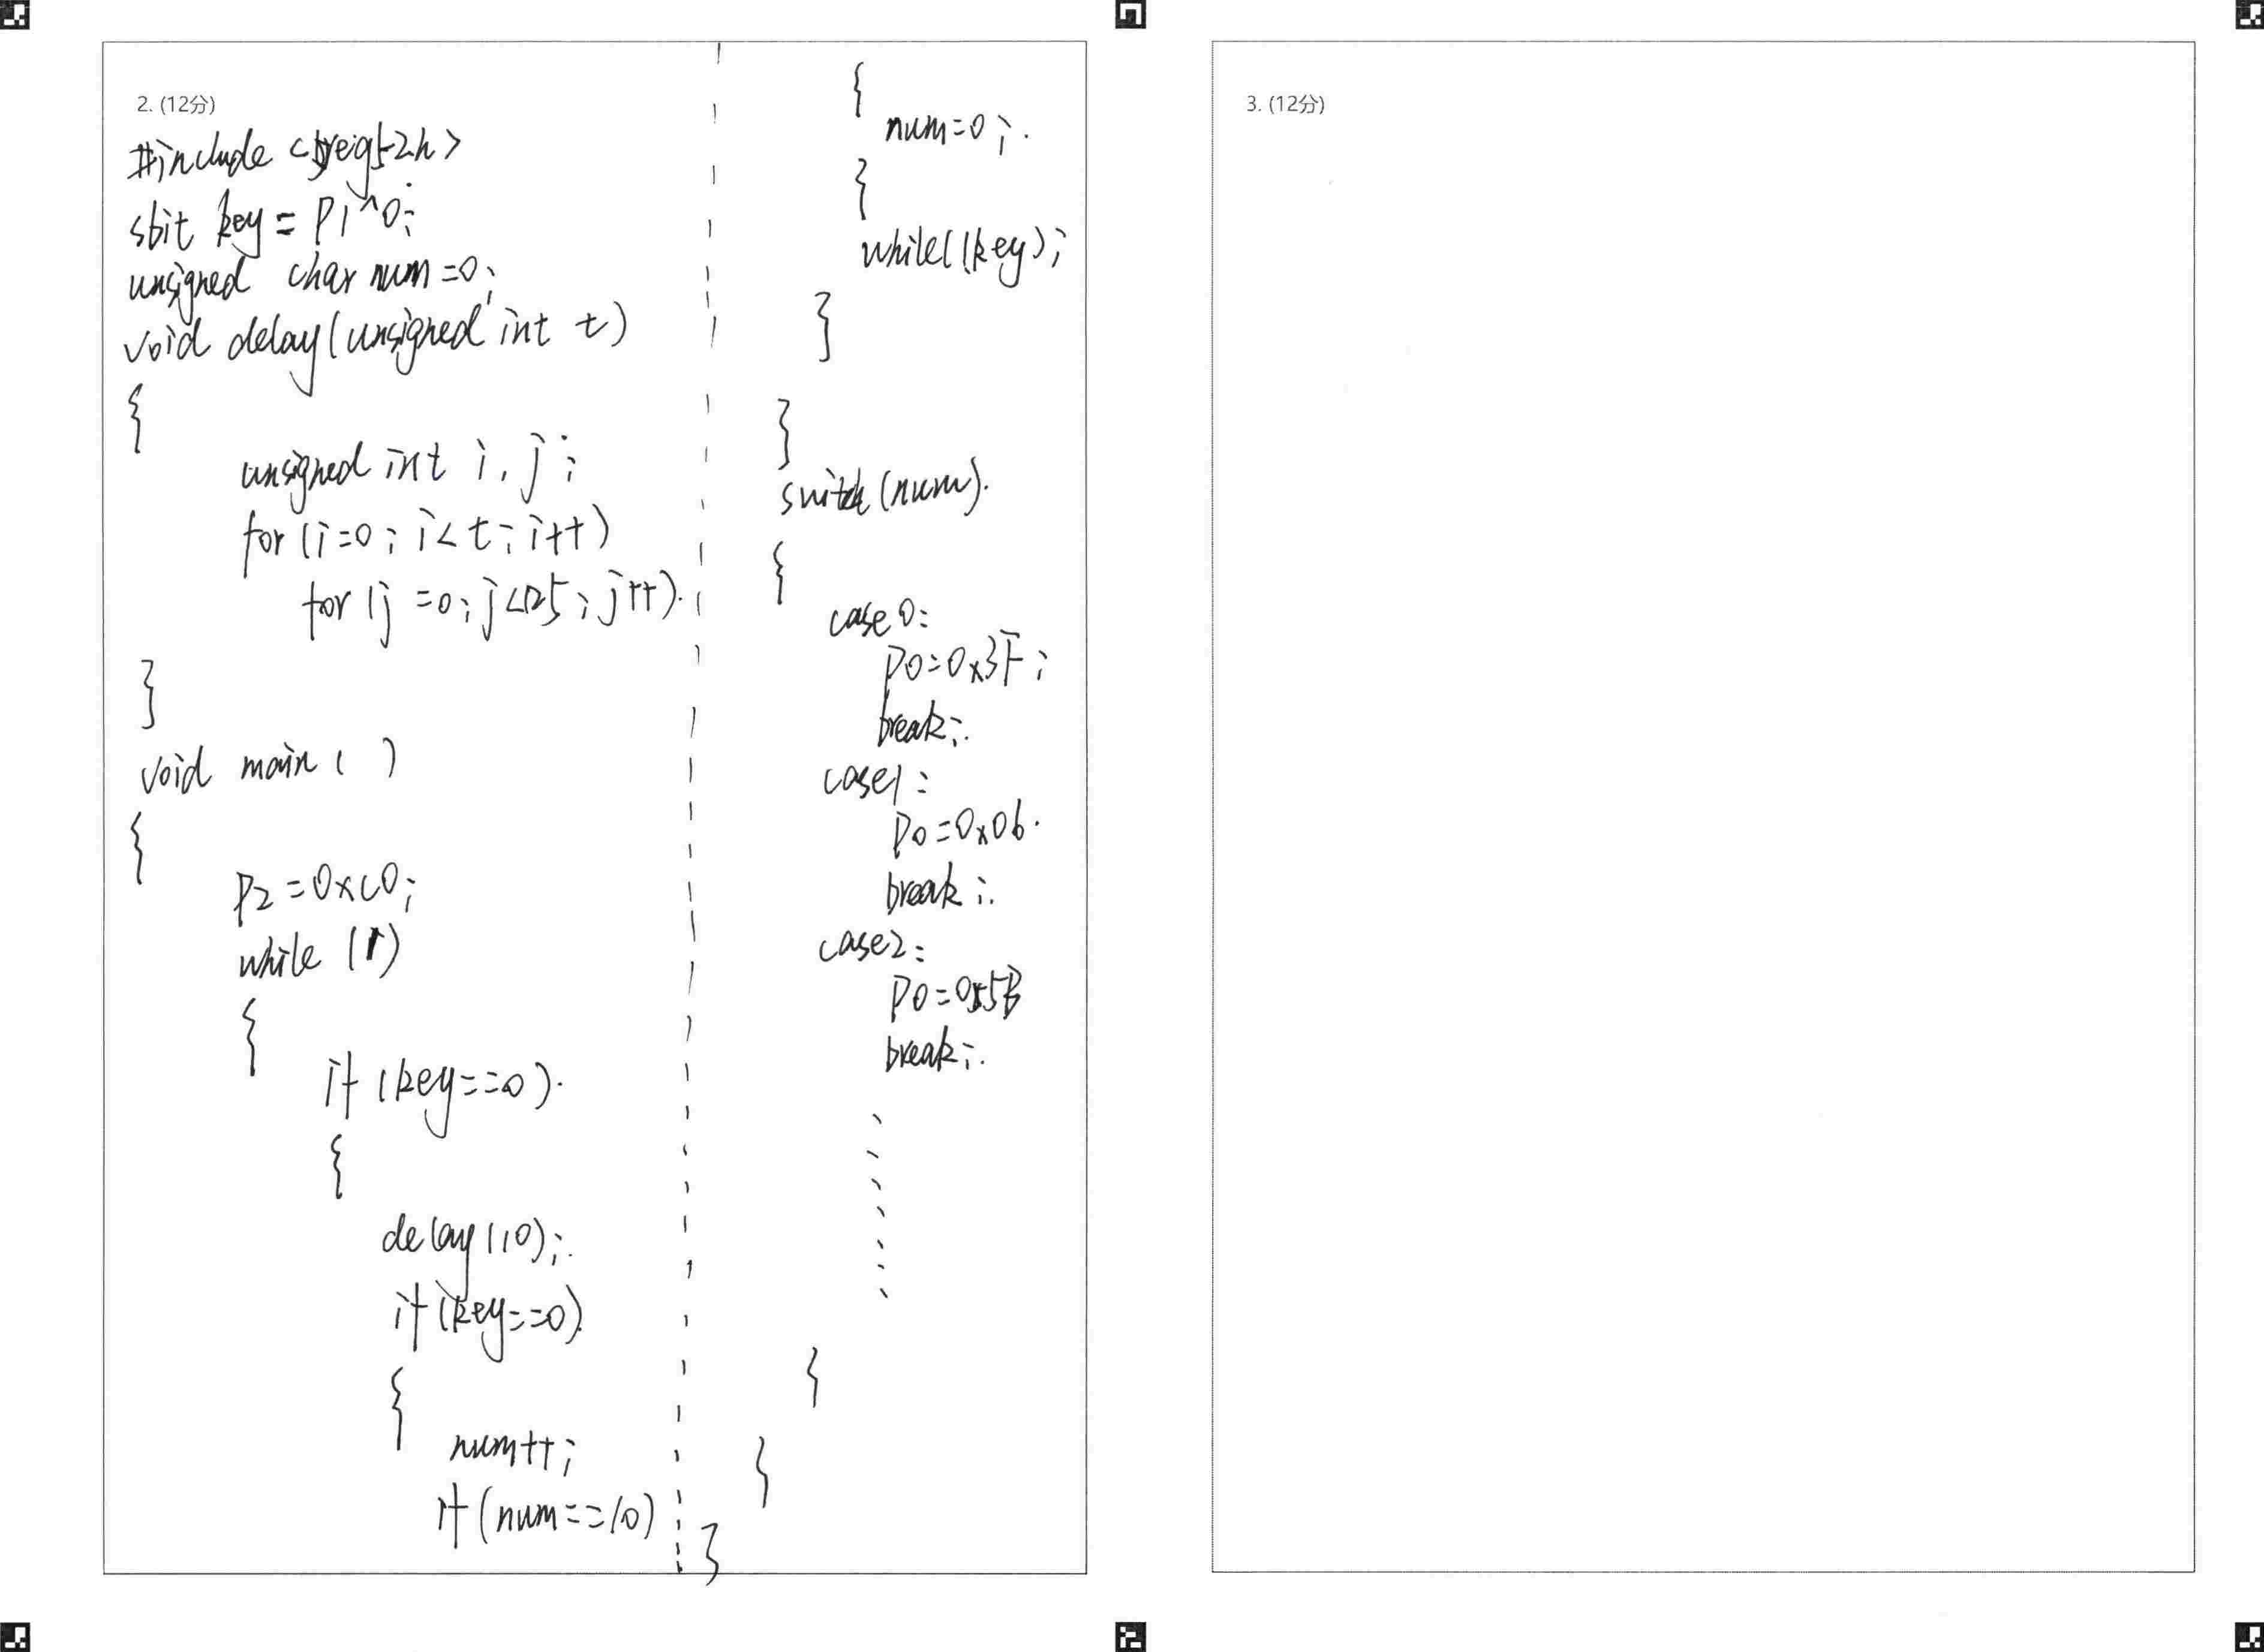 2. (12分)
#include <reg52h>
sbit key = P1^0;
unsigned char num=0;
void delay(unsigned int t)
{
unsigned int i, j;
for(i=0; i<t; i++)
for(j=0; j<125; j++).
}
void main( )
{
P2=0xc0;
while (1)
{
if (key==0).
{
delay(10);.
if(key==0).
{
num++;
if(num==10)
{
num=0;.
}
while(!key);
}
}
switch(num).
{
case 0:
P0=0x3F;
break;.
case1:
P0=0x06.
break;.
case2:
P0=0x5B
break;.
}
}
}
3. (12分)